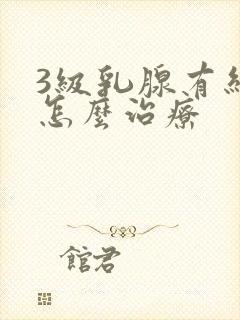 3級乳腺有
怎麼治療
館君